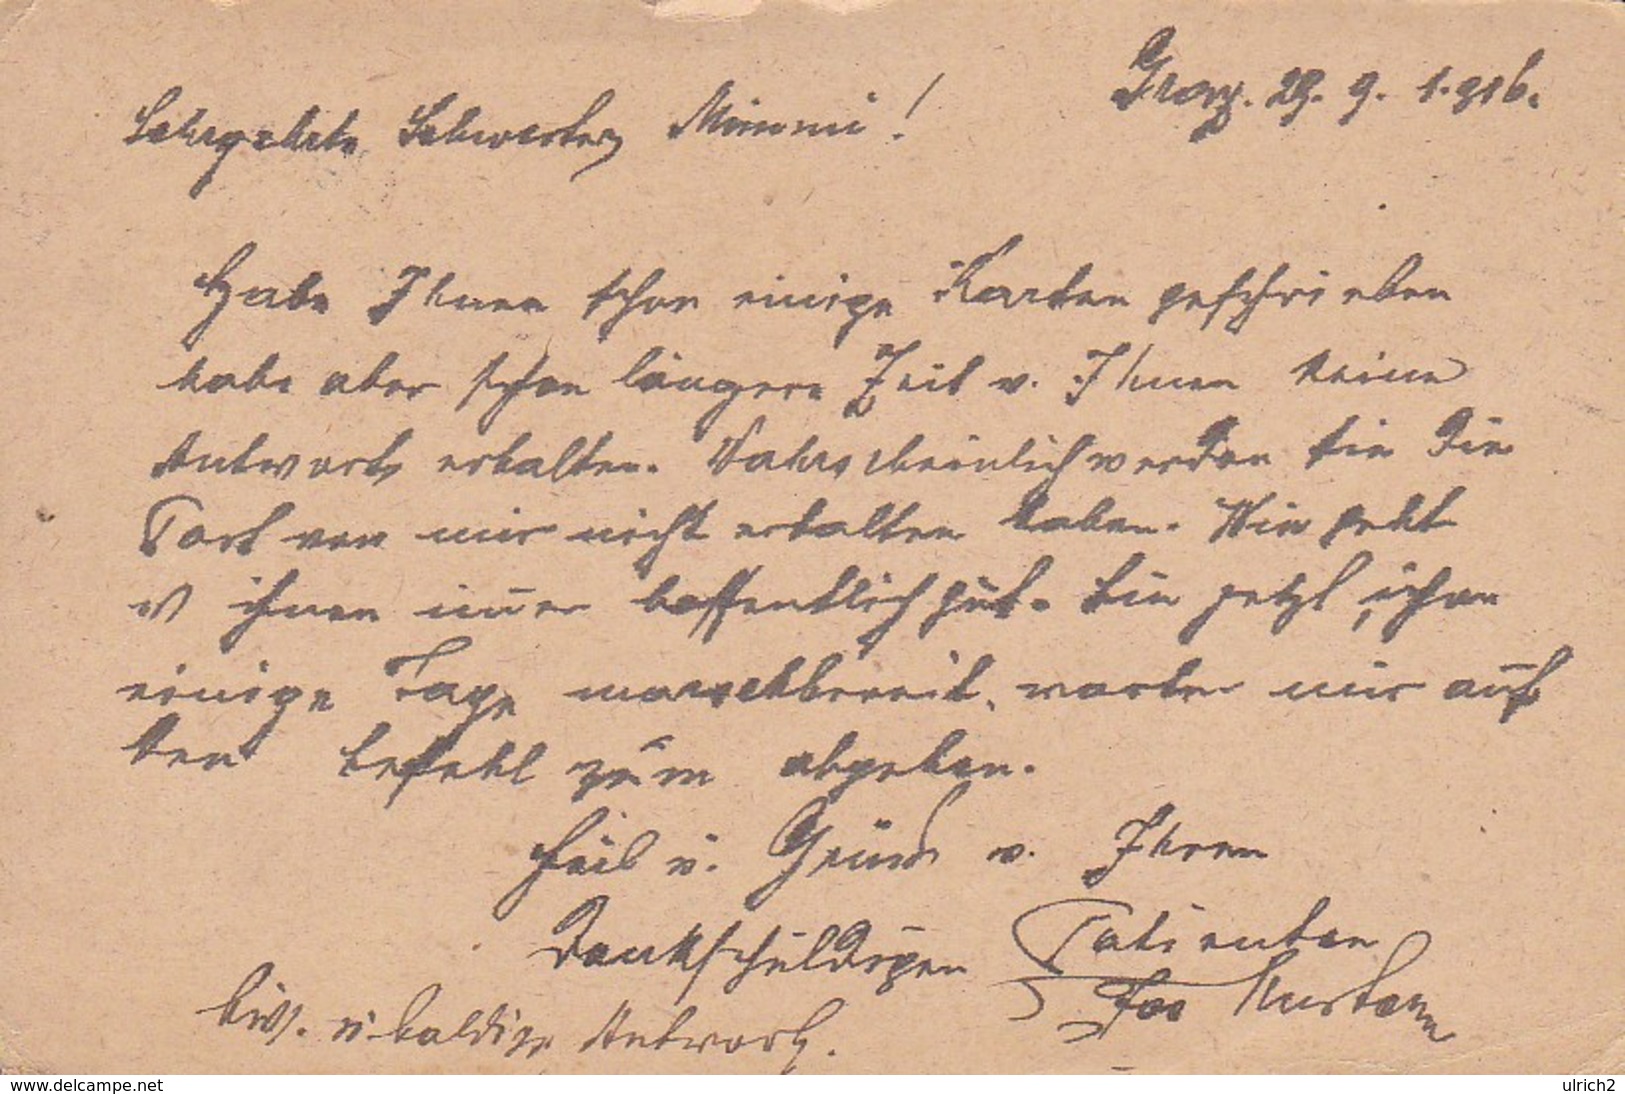 Graz. 29. 9. 1.916.
Sehrgehrte Schwester Mimmi!
Habe Ihnen schon einige Karten geschrieben
habe aber schon längere Zeit v. Ihnen keine
Antwort erhalten. Wahrscheinlich werden Sie die
Post von mir nicht erhalten haben. Wie geht
es ihnen imer hoffentlich gut. Bin jetzt schon
einige Tage marschbereit, warte mir auf
den Befehl zum abgehen.
Heil u. Gruss v. Ihren
Dankschuldigen Patienten
Jos
Bitt. u baldige Antwort.
www.delcampe.net
ulrich2